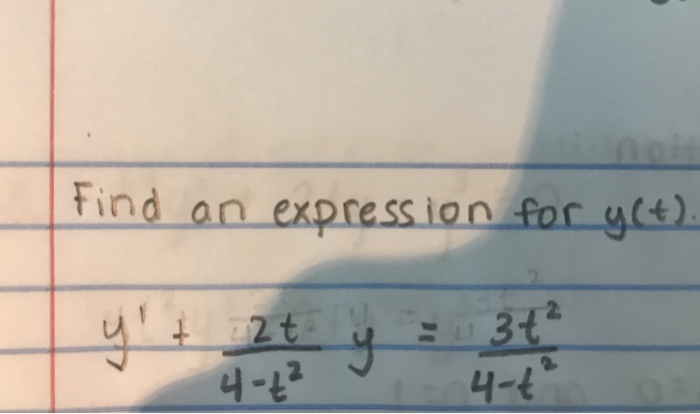 Find an expression for y(t).
y' + 2t/(4-t²) y = 3t²/(4-t²)